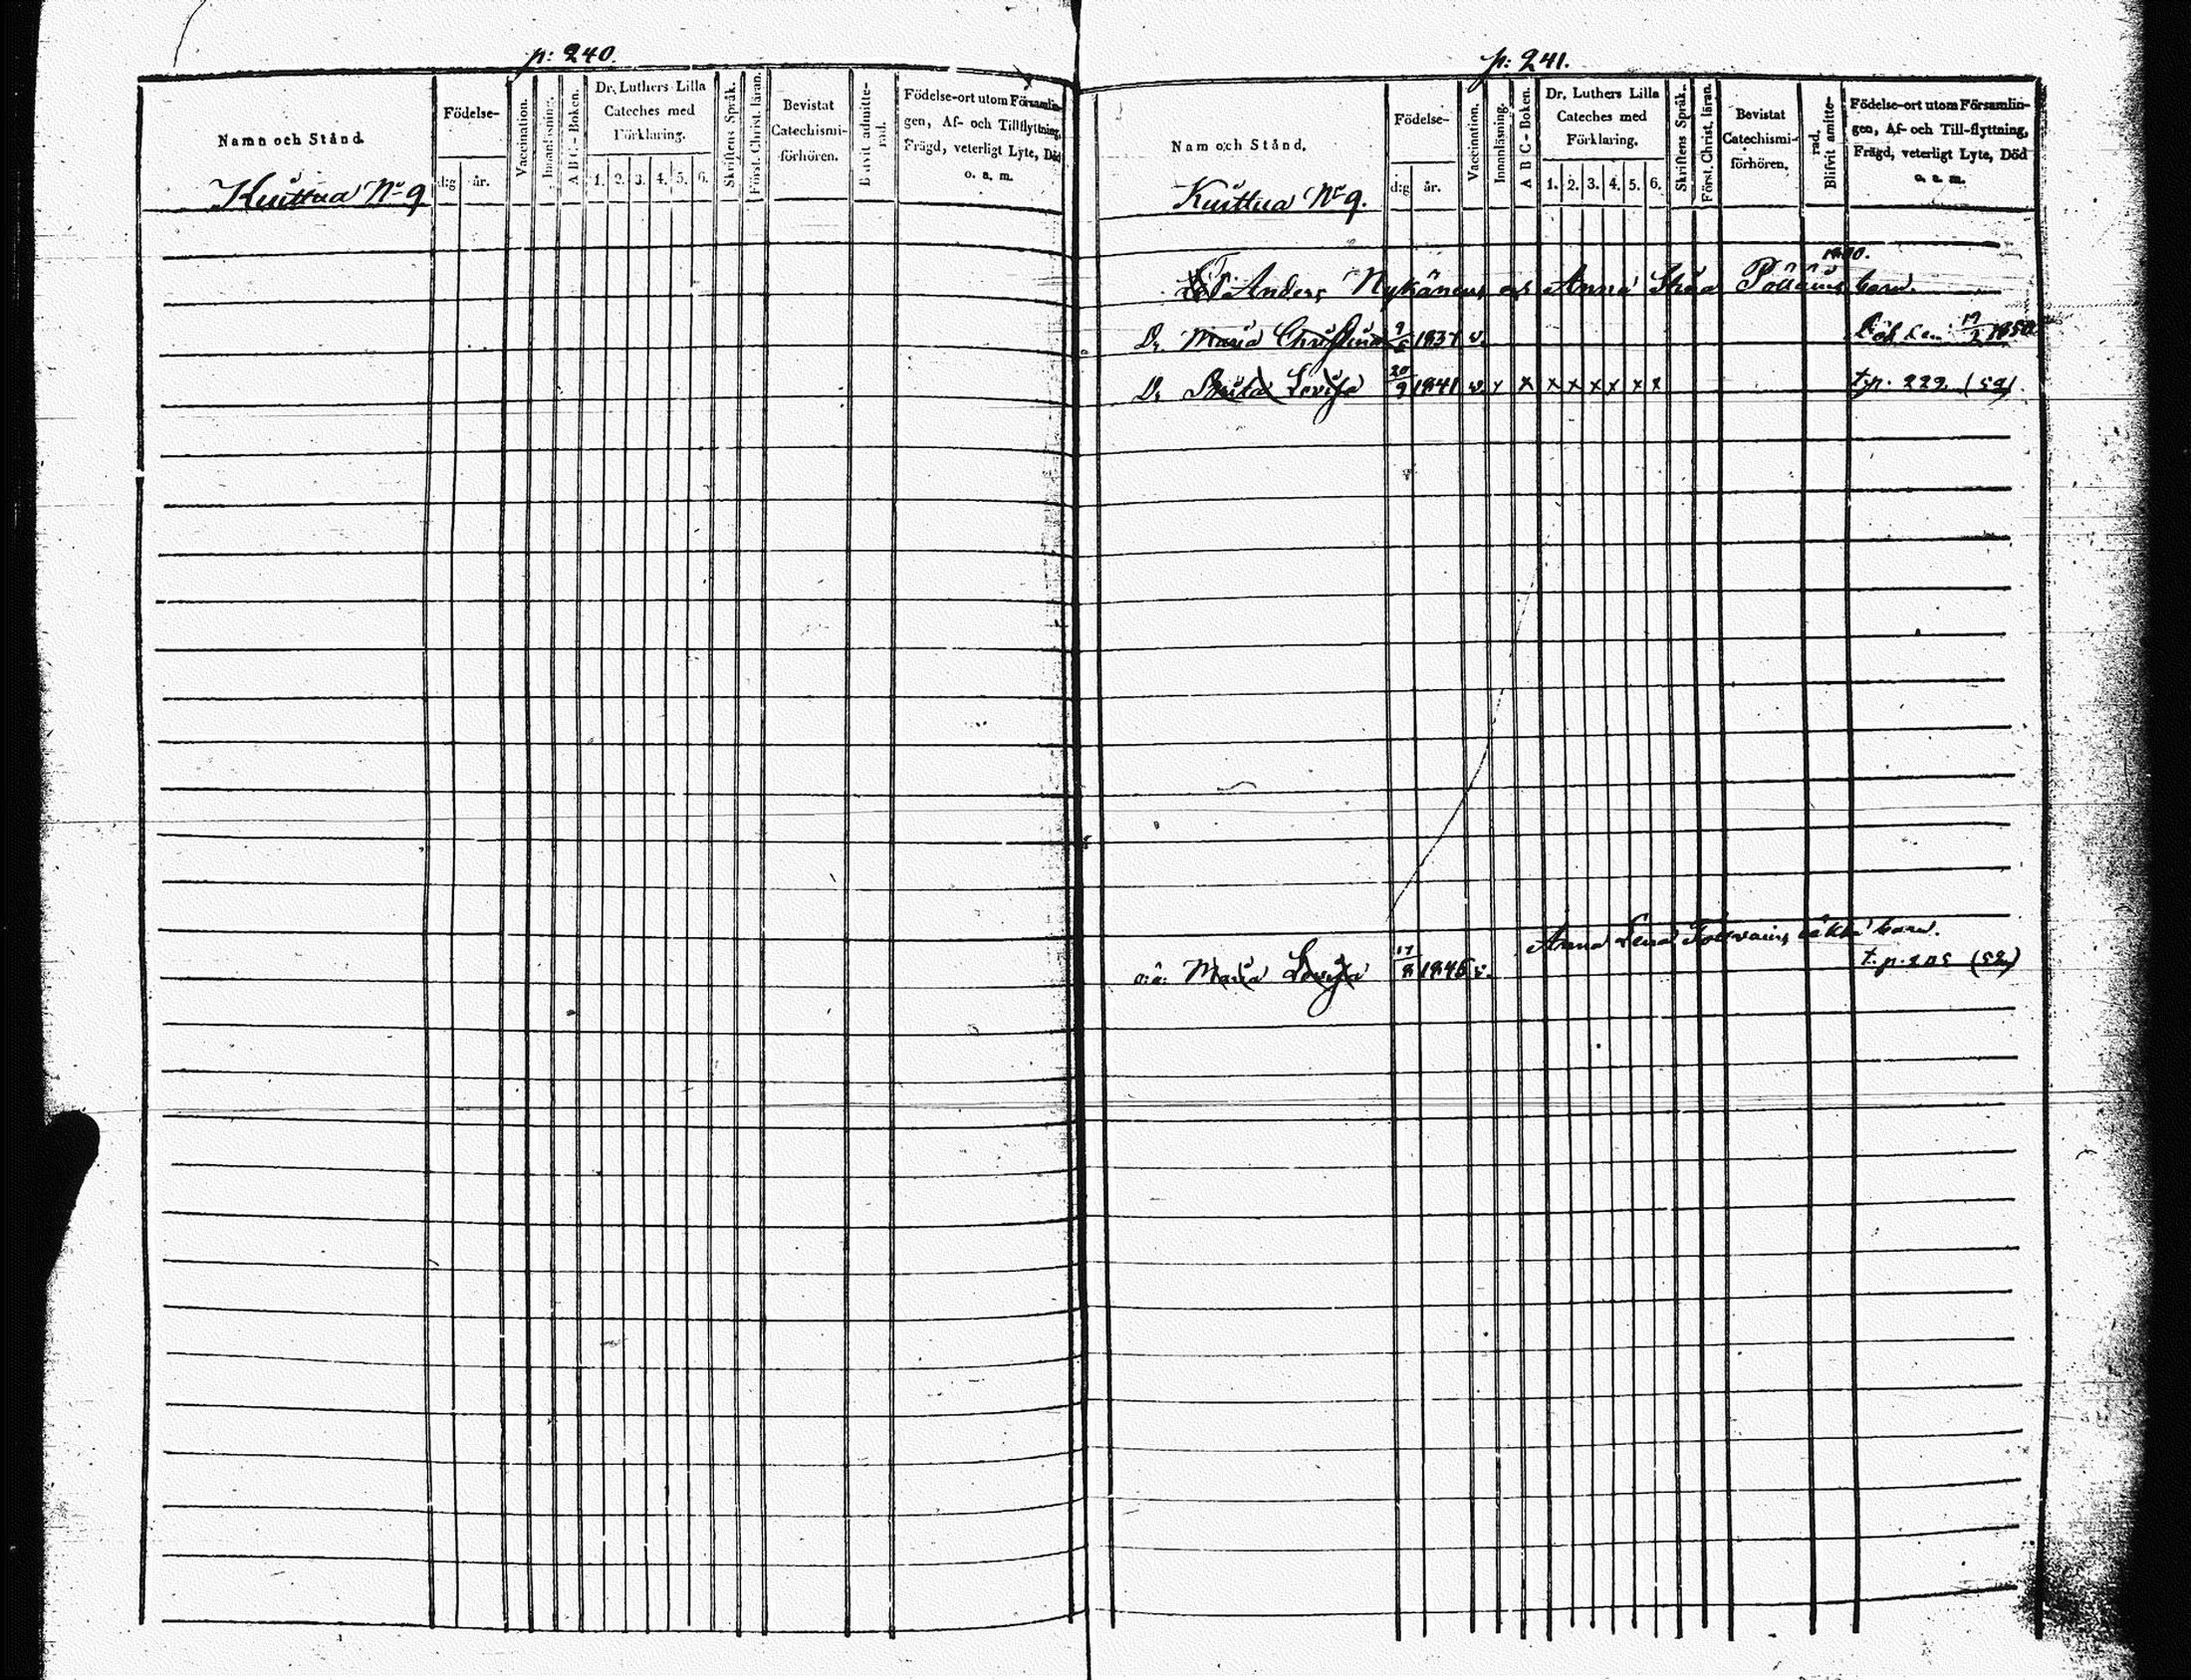 p: 240.
Namn och Stånd.
Födelse-
d:g år.
Vaccination.
Innanläsning.
A B C - Boken.
Dr. Luthers Lilla
Cateches med
Förklaring.
1. 2. 3. 4. 5. 6.
Skriftens Språk.
Först. Christ. läran.
Bevistat
Catechismi-
förhören.
Blifvit admitte-
rad.
Födelse-ort utom Församlin-
gen, Af- och Tillflyttning,
Frägd, veterligt Lyte, Död
o. a. m.
Kuittua No 9
p: 241.
Nam och Stånd.
Födelse-
d:g år.
Vaccination.
Innanläsning.
A B C - Boken.
Dr. Luthers Lilla
Cateches med
Förklaring.
1. 2. 3. 4. 5. 6.
Skriftens Språk.
Först. Christ. läran.
Bevistat
Catechismi-
förhören.
Blifvit amitte-
rad.
Födelse-ort utom Församlin-
gen, Af- och Till-flyttning,
Frägd, veterligt Lyte, Död
o. a. m.
Kuittua No 9.
Anders Nykänens Anna barn.
Dr. Maria Christina 1837 v. Död den 1850
Dr. Brita Lovisa 20/9 1841 v. x x x x x x x x t.p. 222 (52)
Anna Lena barn.
o.ä. Maria Lovisa 17/8 1845 v. t.p. 205 (52)